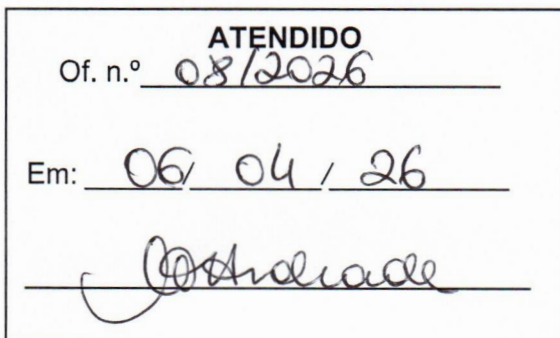 ATENDIDO
Of. n.º 08/2026
Em: 06/ 04 / 26